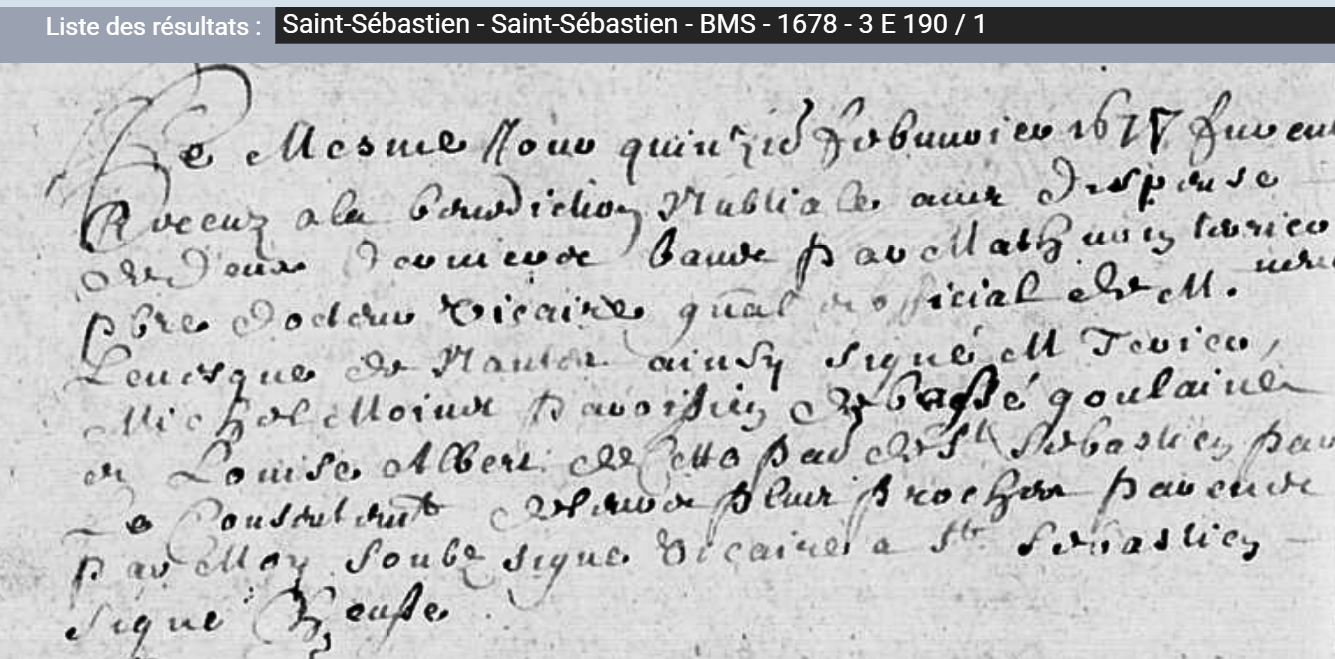 Liste des résultats : Saint-Sébastien - Saint-Sébastien - BMS - 1678 - 3 E 190 / 1
Le Mesme Jour quinzie febvurier 1678 furent
Receuz a la benediction Nubtialle avec dispense
de deux derniere bans par Mathurin terrien
pbre docteur Vicaire gnal official de M.
Levesque de Nantes ainsy signé M Terien,
Michel Moine paroissien de basse goulaine
et Louise Albert de cette par de St Sebastien par
Le Consentemt de leurs plus proches parents
par Moy soubz signe Vicaire a St Sebastien
signe